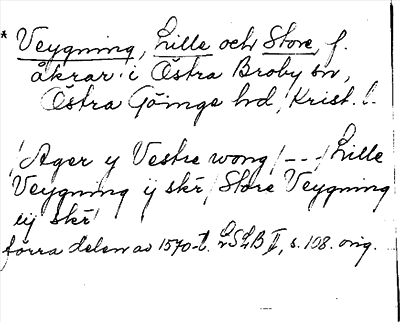 * Veygning, Lille och Store, f.
åkrar i Östra Broby sn,
Östra Göinge hd, Krist. l.
! Ager y Vestre wong / - - - / Lille
Veygning ij skr / Store Veygning
iij skr!
förra delen av 1570-t. LSLB II, s. 198. orig.